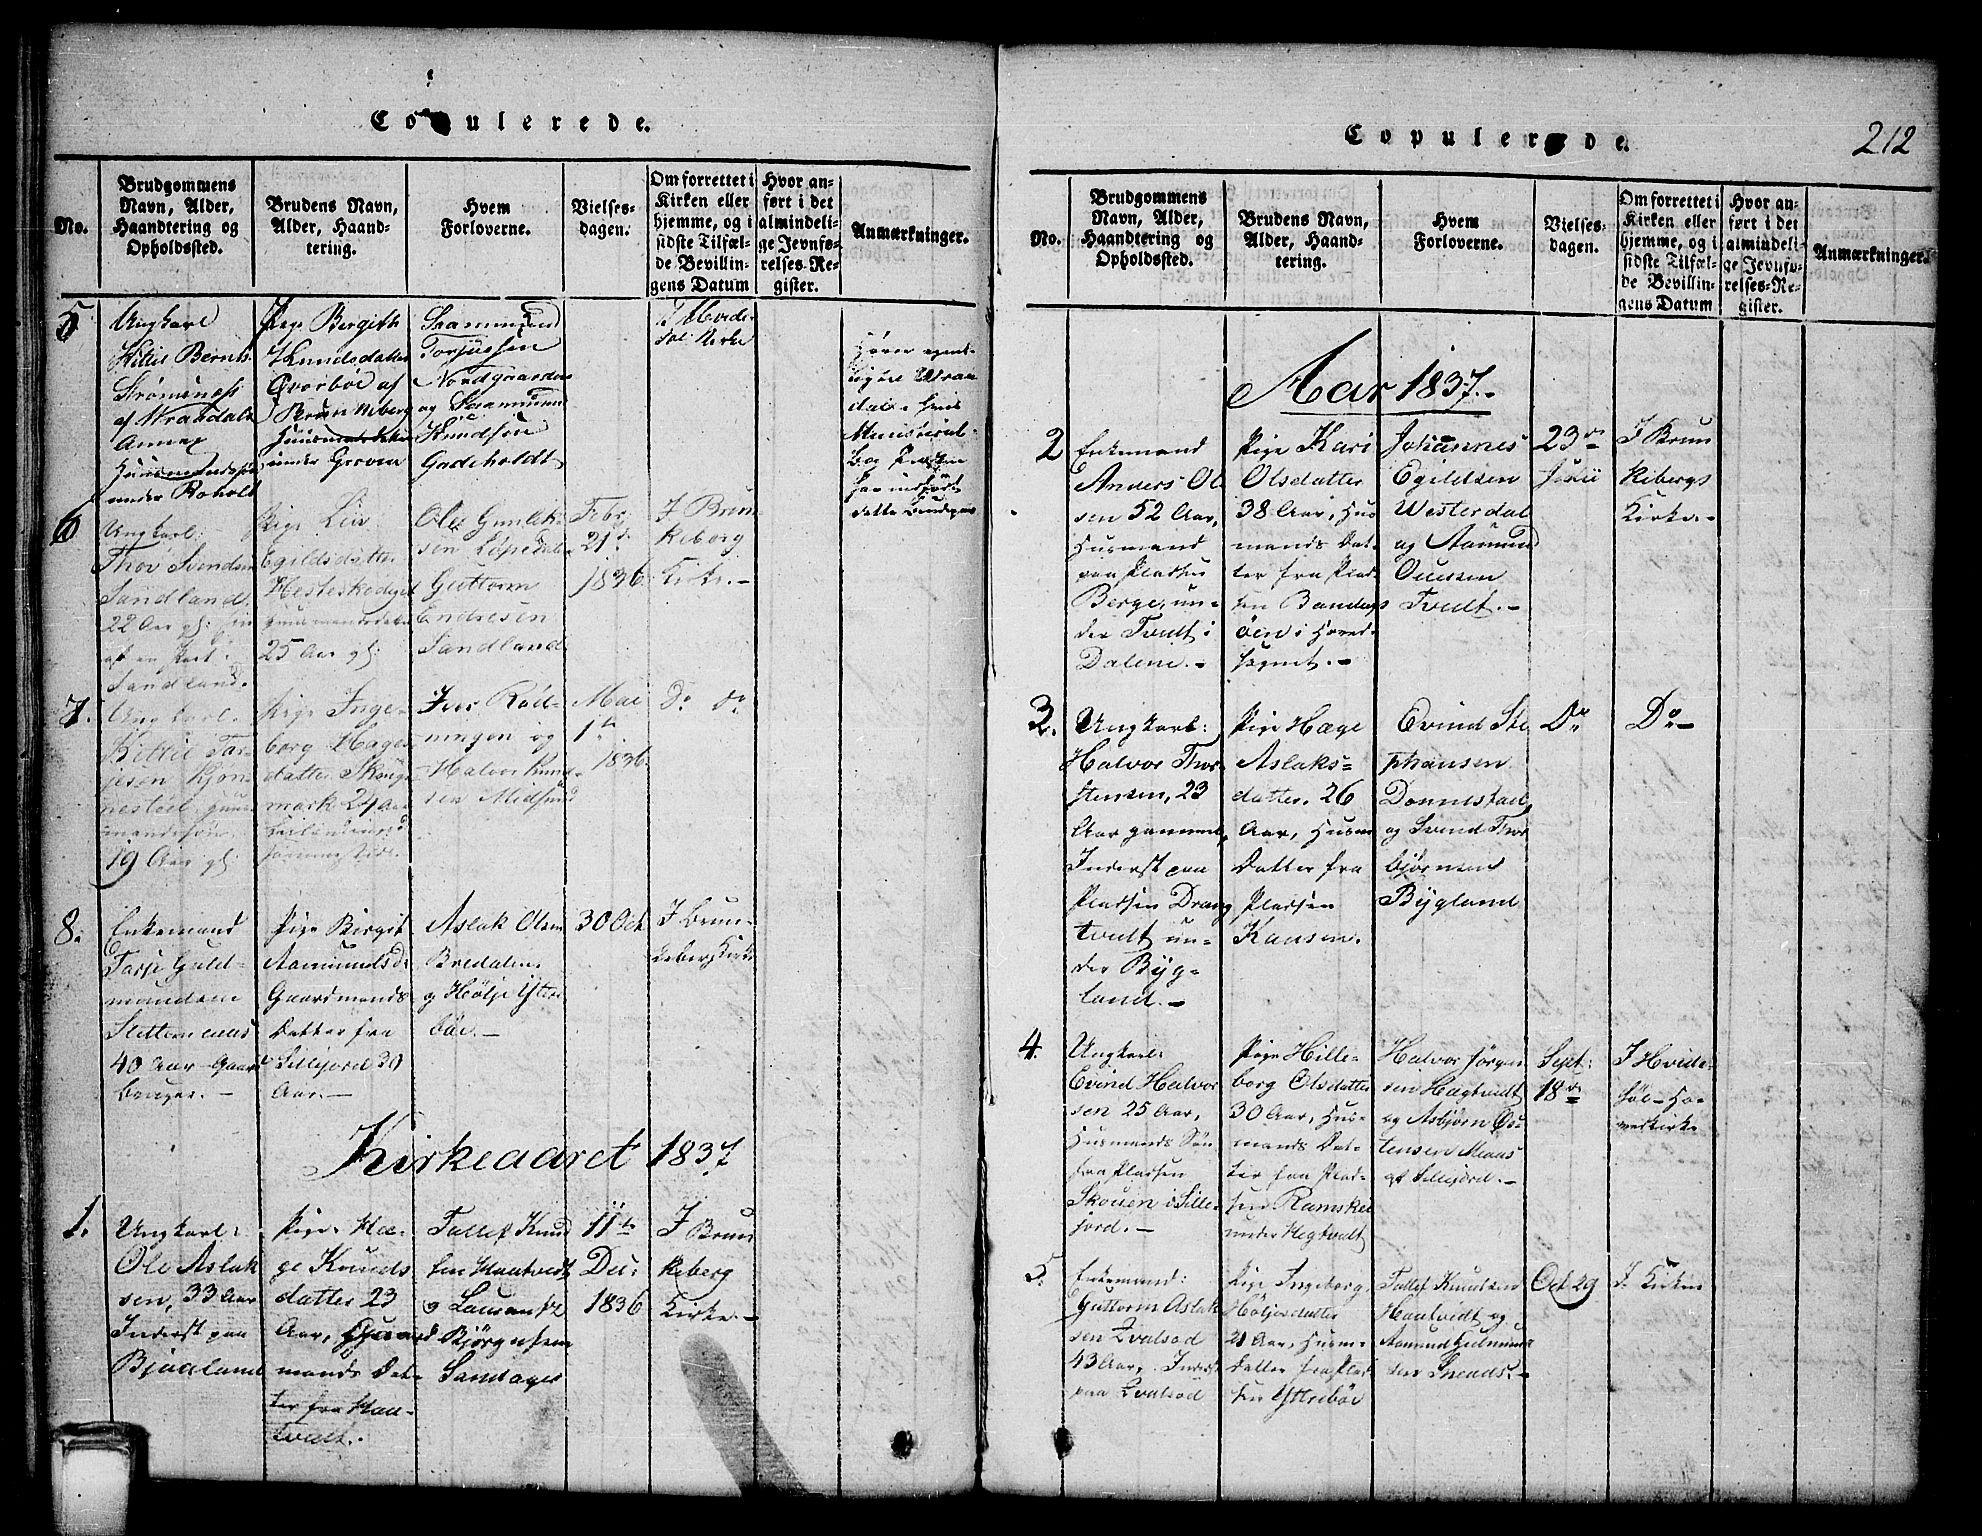 Copulerede.
No.
Brudgommens
Navn, Alder,
Haandtering og
Opholdssted.
Brudens Navn,
Alder, Haand=
tering.
Hvem
Forloverne.
Vielses=
dagen.
Om forrettet i
Kirken eller
hjemme, og i
sidste Tilfæl=
de Bevillin=
gens Datum
Hvor an=
ført i det
almindeli=
ge Jevnfø=
relses=Re=
gister.
Anmærkninger.
5
Ungkarl
Kittil Bernts
Strømsness
af Wraadals
Annex
Huusmandssøn
under Roholt
Pige Bergith
Knudsdatter
Øvorbøe af
Brunkeberg
Huusmandsdatter
under Groven
Saamund
Torjussen
Nordgaarden
og Saamund
Knudsøn
Gadeholdt
I Hvide-
søe Kirke
Hører egent-
ligere Wraa
dal, hvis
Ministerial-
Bog
har indført
dette
6
Ungkarl:
Thov Svendsen
Sandland,
22 Aar gl:
af en Part
Sandland.
Pige Liv
Egildsdatter
Hesteskodiget
Huusmandsdatter
25 Aar gl:
Ole Gunlek-
sen Løpedale
Guttorm
Endresen
Sandland
Febr:
21de
1836.
I Brun
keberg
Kirke.-
7.
Ungkarl.
Kittil Tar-
jesen Kjon
nestøel Huus
mandssøn
19 Aar gl:
Pige Inge-
borg Hages
datter Skougs
mark 24 Aar
Iver Røe-
ningen og
Halvor Knud-
sen Midsund
Mai
1te
1836.
Do do
8.
Enkemand
Tarje Guld-
mundsen
Slettemeaas
40 Aar Gaard
bruger.-
Pige Birgit
Aamundsd:
Gaardmands
Datter fra
Sillejord 30
Aar.-
Aslak Olsen
Bredalen,
og Høljе Ytre
bøe.-
30 Oct
I Brun-
keberg Kirke
Kirkeaaret 1837
1.
Ungkarl:
Ole Aslak
sen, 33 Aar
Inderst paa
Bjaaland
Pige Hæ-
ge Knuds
datter 23
Aar, Gaard
mands Dat-
ter fra Haa-
tvedt.
Tallef Knud
sen Haatvedt
og Laurantz
Bjørgusen
Sandager
11te
Dec:
1836
I Brun
keberg
Kirke.-
Copulerede.
212
No.
Brudgommens
Navn, Alder,
Haandtering og
Opholdssted.
Brudens Navn,
Alder, Haand=
tering.
Hvem
Forloverne.
Vielses=
dagen.
Om forrettet i
Kirken eller
hjemme, og i
sidste Tilfæl=
de Bevillin=
gens Datum
Hvor an=
ført i det
almindeli=
ge Jevnfø=
relses=Re=
gister.
Anmærkninger.
Aar 1837.-
2
Enkemand
Anders Ol
sen 52 Aar,
Husmand
paa Pladsen
Berge, un-
der Tvedt i
Dalene.-
Pige Kari
Olsdatter
38 Aar, Hus
mands Dat-
ter fra Plad-
sen Bandags
øen i Hoved-
sognet.-
Johannes
Egildsen
Westerdal
og Aamund
Ouessen
Tvedt.-
23de
Julii
I Brun
kebergs
Kirke.-
3.
Ungkarl:
Halvor Thor
stensen, 23
Aar gammel,
Inderst paa
Pladsen Drang
tvedt un-
der Byg-
land.-
Pige Hæge
Aslaks-
datter, 26
Aar, Husm
Datter fra
Pladsen
Kaasen.
Evind Ste
phansen
Donnestad
og Svend Thor
bjørnsen
Bygland
Do
Do-
4.
Ungkarl:
Evind Halvor
sen 25 Aar,
Husmands Søn
fra Pladsen
Skouen i Sille-
jord.-
Pige Hille-
borg Olsdatter
30 Aar, Hus-
mands Dat-
ter fra Plad-
sen Ramske
under Hegtvedt
Halvor Jørgen
sen Hægtvedt
og Asbjørn Øs-
tensen Meaas
af Sillejord.-
Sept:
18de
I Hvide-
søe Ho-
vedkirke
5.
Enkemand:
Guttorm Aslak
sen Qvalsod
43 Aar, Inderst
paa Qvalsod
Pige Ingeborg
Høljesdatter
21 Aar, Husm-
Datter fra Plad
sen Ytrebøe
Tallef Knudsen
Haatvedt og
Aamund Gulmund
sen
Oct 29
I Kirken